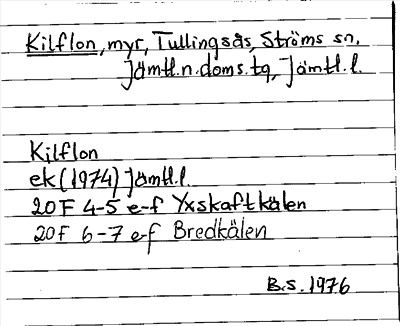 Kilflon, myr, Tullingsås, Ströms sn,
Jämtl.n.doms.tg, Jämtl.l.
Kilflon
ek (1974) Jämtl.l.
20F 4-5 e-f Yxskaftkälen
20F 6-7 e-f Bredkälen
B.S. 1976